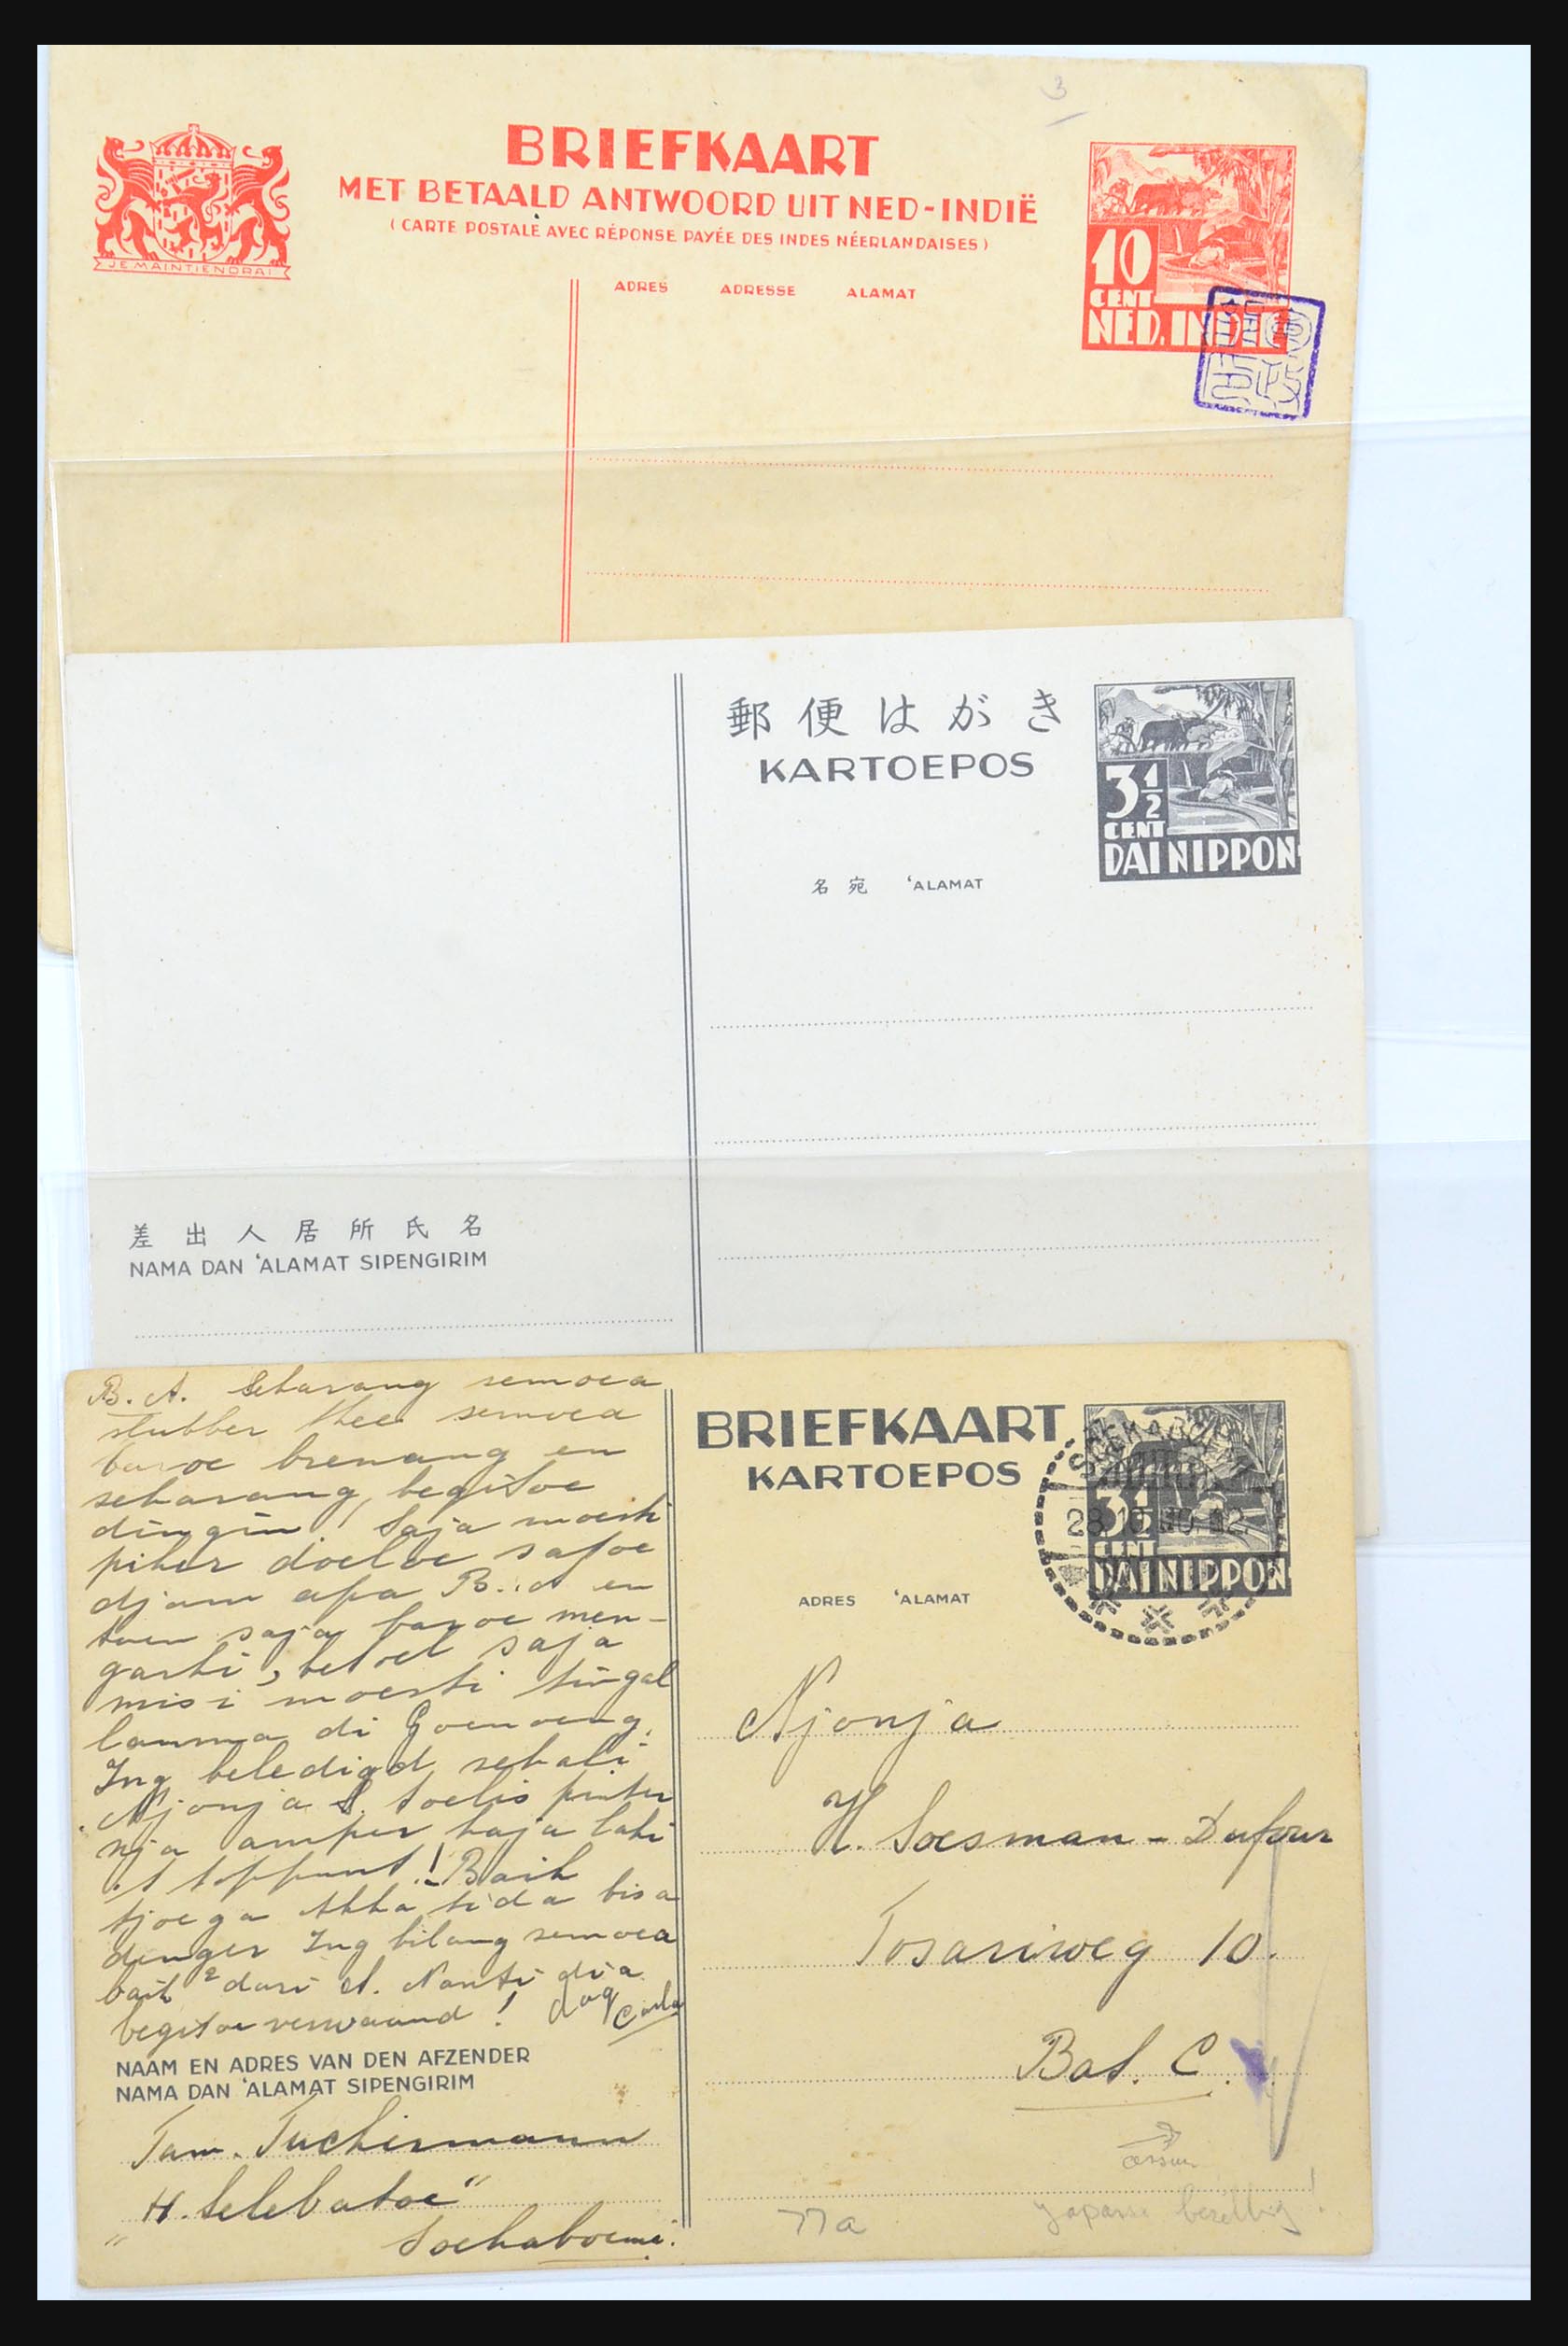 3
BRIEFKAART
MET BETAALD ANTWOORD UIT NED-INDIË
( CARTE POSTALE AVEC RÉPONSE PAYÉE DES INDES NÉERLANDAISES )
JE MAINTIENDRAI
ADRES ADRESSE ALAMAT
10
CENT
NED. INDIË
郵便はがき
KARTOEPOS
3 1/2
CENT
DAI NIPPON
名宛 'ALAMAT
差出人居所氏名
NAMA DAN 'ALAMAT SIPENGIRIM
B. A. Sekarang semoea
slubber thee semoea
baroe brenang en
sekarang begitoe
dingin! Saja moesti
pikir doeloe satoe
djam apa B. A en
toen saja baroe men-
garti, betoel saja
misi moesti tingal
lamma di Goenoeng.
Ing beledigd sekali
Njonja S. toelis pinter
nja amper kaja laki
't toppunt! Baik
tjoega Akka tida bisa
denger Ing bilang semoea
baik 2 dari A. Nanti dia
begitoe verwaand! dag Carla
NAAM EN ADRES VAN DEN AFZENDER
NAMA DAN 'ALAMAT SIPENGIRIM
Fam. Tuchirmann
"H. Selebatoe"
Soekaboemi.
BRIEFKAART
KARTOEPOS
3 1/2
CENT
DAI NIPPON
SOEKABOEMI
28.10
ADRES 'ALAMAT
Njonja
H. Soesman - Dufour
Tosariweg 10.
Bat. C.
censuur
77a
Japanse bezetting!